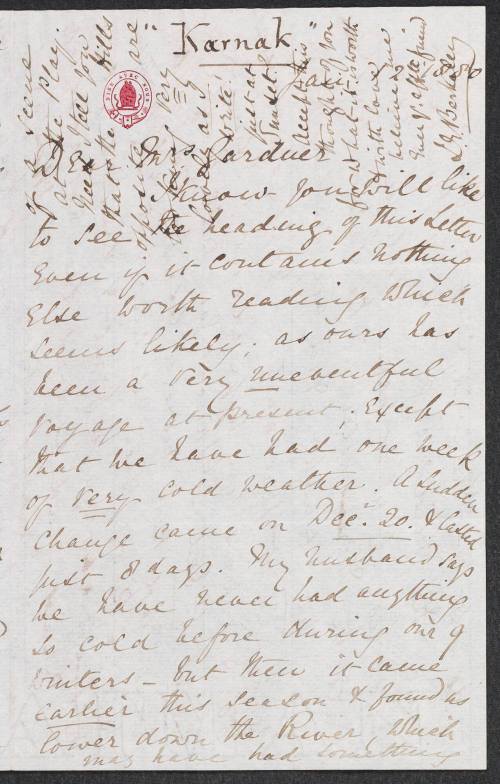 Karnak
Jan 12 1880
Dear Mrs Gardner
I know you will like
to see the heading of this Letter
Even if it contains nothing
Else worth reading which
seems likely; as ours has
been a very uneventful
voyage at present; Except
that we have had one week
of very cold weather. A sudden
change came on Decr. 20. & lasted
just 8 days. My husband says
we have never had anything
so cold before during our 9
winters - but then it came
earlier this season & found us
lower down the River, which
may have had something
scene
at the play.
must tell you
that the Hills
opposite are
very
as I
wrote
just at
Sunset
Accept this
thought of you
for what it is worth
& with love
believe me